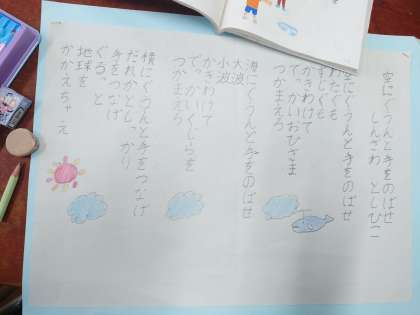 空にぐうんと手をのばせ
しんざわ としひこ
空にぐうんと手をのばせ
わたぐも
すじぐも
かきわけて
でっかいおひさま
つかまえろ
海にぐうんと手をのばせ
大波
小波
かきわけて
でっかいくじらを
つかまえろ
横にぐうんと手をつなげ
だれかとしっかり
手をつなげ
ぐるっと
地球を
かかえちゃえ